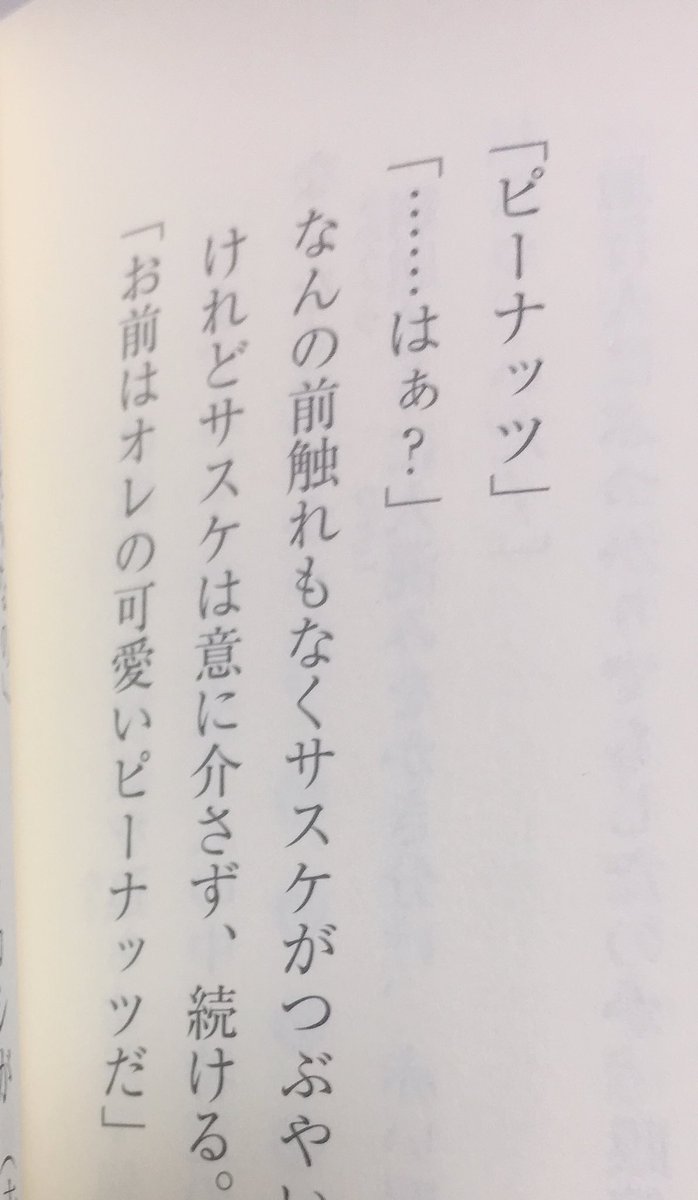 「ピーナッツ」
「……はぁ？」
なんの前触れもなくサスケがつぶやい
けれどサスケは意に介さず、続ける。
「お前はオレの可愛いピーナッツだ」